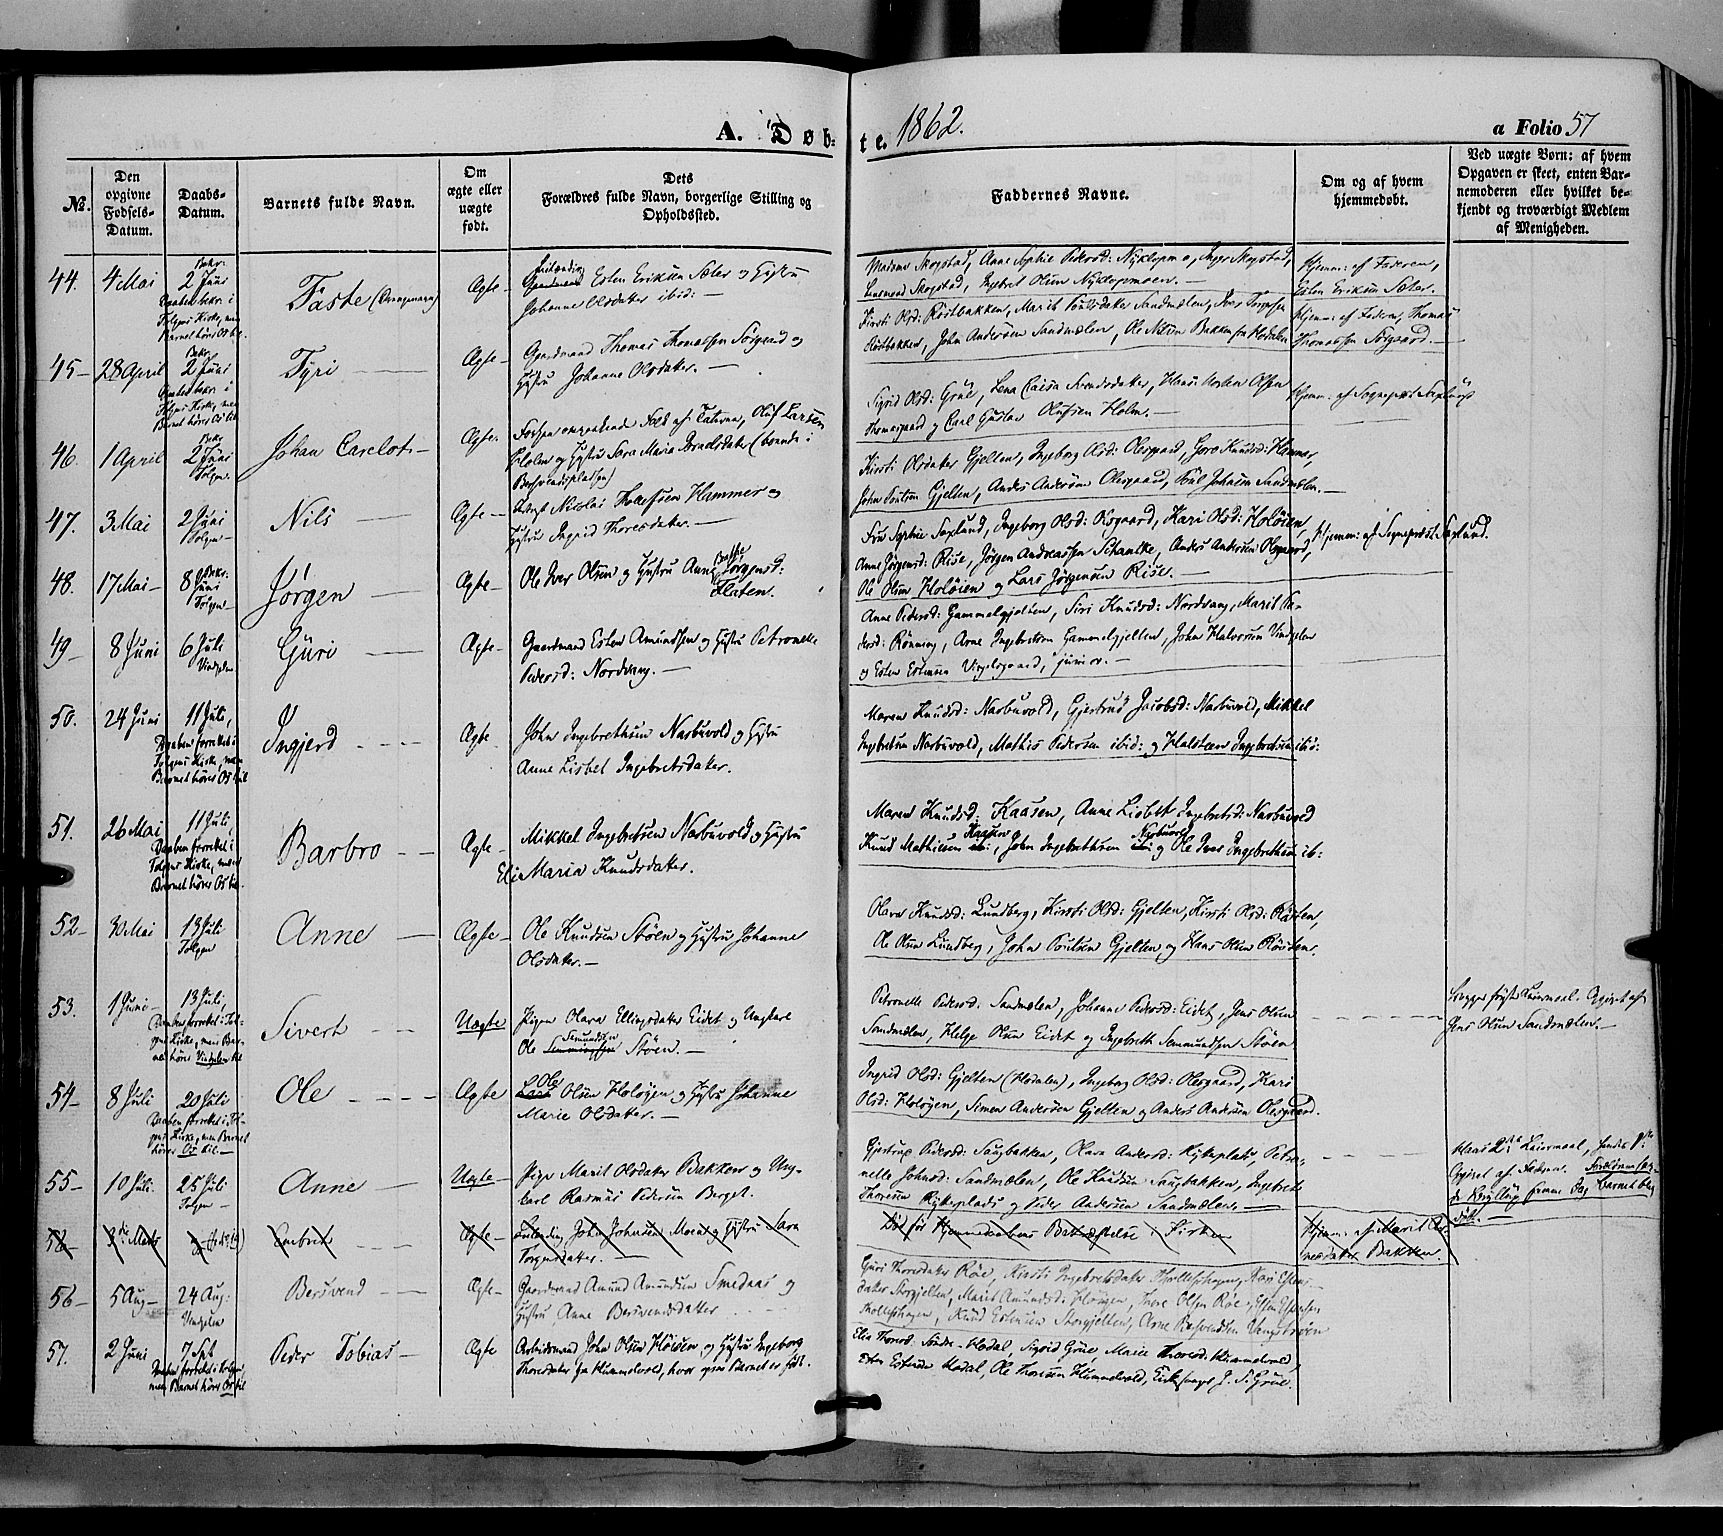 A. Døb=
te. 1862.
a Folio 57
№.
Den opgivne Fødsels-Datum.
Daabs-Datum.
Barnets fulde Navn.
Om ægte eller uægte født.
Dets
Forældres fulde Navn, borgerlige Stilling og
Opholdssted.
Faddernes Navne.
Om og af hvem
hjemmedøbt.
Ved uægte Børn: af hvem
Opgaven er skeet, enten Bar-
nemoderen eller hvilket be-
kjendt og troværdigt Medlem
af Menigheden.
44. 4 Mai
Bekr:
2 Juni
Tolgens Kirke, men
Barnet hører Os til.
Faste
Ægte-
Esten Eriksen Sæter og Hustru
Johanne Olsdater ibid: -
Madame Skogstad, Anne Sophie Pedersd: Nyklepmo, Inger Skogstad,
Lensmand Skogstad, Ingebret Olsen Nyklepmoen. -
Hjemm: af Faderen,
Esten Eriksen Sæter.
45- 28 April
Bekr.
2 Juni
Tolgens Kirke, men
Barnet hører Os til
Tyri
Ægte-
Gaardmand Thomas Thomassen Sørgaard og
Hustru Johanne Olsdater. -
Kirsti Olsd: Røstbakken, Marit Poulsdater Sandmælen, Iver
Røstbakken, John Andersen Sandmælen, Ole Nilsen Bakken fra Hodalen
Hjemm: af Faderen, Thomas
Thomassen Sørgaard. -
46. 1 April
Bekr.
2 Juni
Tolgen.
Johan Carelot-
Ægte.
Folk af Tatere, Oluf Larsen
Holm og Hustru Sara Maria (boende i
Bersvendspladsen)
Sigrid Olsd: Grue, Lena Caisa Svendsdater, Hans Olsen
Thomasgaard og Carl Gustav Olufsen Holm. -
Hjemm: af Sognepræst Saxlund
47. 3 Mai
2 Juni
Tolgen-
Nils
Ægte-
Nicolai Tollefsen Hammer og
Hustru Ingrid Thoresdater. -
Kirsti Olsdater Gjelten, Ingeborg Olsd: Olesgaard, Goro Knudsd: Hammer,
John Poulsen Gjelten, Anders Andersen Olesgaard, Poul Johnsen Sandmælen. -
48. 17 Mai-
Bekr.
8 Juni
Tolgen-
Jørgen
Ægte-
Ole Iver Olsen og Hustru Anne Jørgensd:
Flaten.
Fru Sophie Saxlund, Ingeborg Olsd: Osgaard, Kari Olsd: Holøien,
Anne Jørgensd: Rise, Jørgen Andreassen Schanke, Anders Andersen Olesgaard,
Ole Olsen Holøien og Lars Jørgensen Rise. -
Hjemm: af Sognepræst Saxlund.
49- 8 Juni
6 Juli
Vingelen
Guri
Ægte-
Gaardmand Esten Amundsen og Hustru Petronelle
Pedersd: Nordvang. -
Anne Pedersd: Gammelgjelten, Siri Knudsd: Nordvang, Marit Pe-
dersd: Rønning, Arne Ingebretsen Gammelgjelten, John Halvorsen Vingelen
og Esten Estensen Virgelsgaard, junior. -
50. 24 Juni
11 Juli,
Daaben forrettet i
Tolgens Kirke, men
Barnet hører Os til
Ingjerd
Ægte
John Ingebrethsen Narbuvold og Hustru
Anne Lisbet Ingebretsdater.
Maren Knudsd: Narbuvold, Gjertrud Jacobsd: Narbuvold, Mikkel
Ingebretsen Narbuvold, Mathis Pedersen ibid: og Halsteen Ingebretsen ibid:
51. 26 Mai
11 Juli,
Daaben forrettet i
Tolgens Kirke, men
Barnet hører Os til.
Barbro
Ægte-
Mikkel Ingebretsen Narbuvold og Hustru
Eli Maria Knudsdater.
Maren Knudsd: Kaasen, Anne Lisbeth Ingebretsd: Narbuvold
Knud Mathisen Kaasen, John Ingebrethsen Narbuvold og Ole Iver Ingebrethsen ib:
52- 30 Mai
13 Juli
Tolgen
Anne
Ægte-
Ole Knudsen Støen og Hustru Johanne
Olsdater. -
Olava Knudsd: Lundberg, Kirsti Olsd: Gjelten, Kirsti Olsd: Røsten,
Ole Olsen Lundberg, John Poulsen Gjelten og Hans Olsen Røsten.
53. 1 Juni-
13 Juli,
Daaben forrettet i Tol-
gens Kirke, men Bar-
net hører Vingelen til
Sivert
Uægte
Pigen Olava Ellingsdater Eidet og Ungkarl
Ole Semundsen Støen. -
Petronelle Pedersd: Sandmælen, Johanne Pedersd: Eidet, Jens Olsen
Sandmælen, Helge Olsen Eidet og Ingebreth Semmundsen Støen
Begges første Leiermaal. Opgivet af
Jens Olsen Sandmælen. -
54- 8 Juli
20 Juli
Daaben forrettet i Tol-
gens Kirke, men Barnet
hører Os til. -
Ole
Ægte
Ole Olsen Holøyen og Hustru Johanne
Marie Olsdater. -
Ingrid Olsd: Gjelten (Hodalen), Ingeborg Olsd: Olesgaard, Kari
Olsd: Holøyen, Simen Andersen Gjelten og Anders Andersen Olesgaard.
55- 10 Juli.
25 Juli
Tolgen-
Anne
Uægte-
Pige Marit Olsdater Bakken og Ung-
karl Rasmus Pedersen Berget.
Gjertrud Pedersd: Saugbakken, Olava Andersd: Kykeplads, Petro-
nelle Johnsd: Sandmælen, Ole Knudsen Saugbakken, Ingebret
Thoresen Kykeplads og Peder Andersen Sandmælen. -
Hans 2det Leiermaal, hendes 1ste
Opgivet af Faderen.
samme Dag Barnet blev
døbt. -
56- 3die Marts
Embret
Ægte-
John Johnsen Moen og Hustru Sara
Død før Hjemmedaabens Bekræftelse i Kirken
Hjemm: af Marit
Bakken.
56- 5 Aug-
24 Aug:
Vingelen
Bersvend
Ægte-
Gaardmand Amund Amundsen Smedaas og
Hustru Anne Bersvendsdater
Guri Thoresdater Røe, Kirsti Ingebretsdater Kari Estens-
dater Storgjelten, Marit Amundsd: Thore Olsen Røe, Esten Estensen
Knud Estensen Storgjelten, Arne Bersvendsen
57. 2 Juni
7 Sept
Daaben forrettet i Tolgen
men Barnet hører Os til
Peder Tobias-
Ægte
Arbeidsmand John Olsen Holøien og Hustru Ingeborg
Thoresdater fra Hummelvold, hvor ogsaa Barnet er født.
Elen Thoresd: Søndre-Hodal, Sigrid Grue, Marie Thoresd: Hummelvold,
Esten Estensen Hodal, Ole Thoresen Hummelvold, Kirkesanger J. S. Grue.